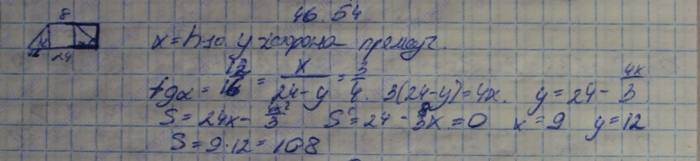 8
46 54
24
x = h по y сторона прямоуг.
tgα = 12/16 = x/(24-y) = 3/4. 3(24-y)=4x. y = 24 - 4x/3
S = 24x - 4x²/3 S = 24 - 8/3x = 0 x = 9 y = 12
S = 9·12 = 108